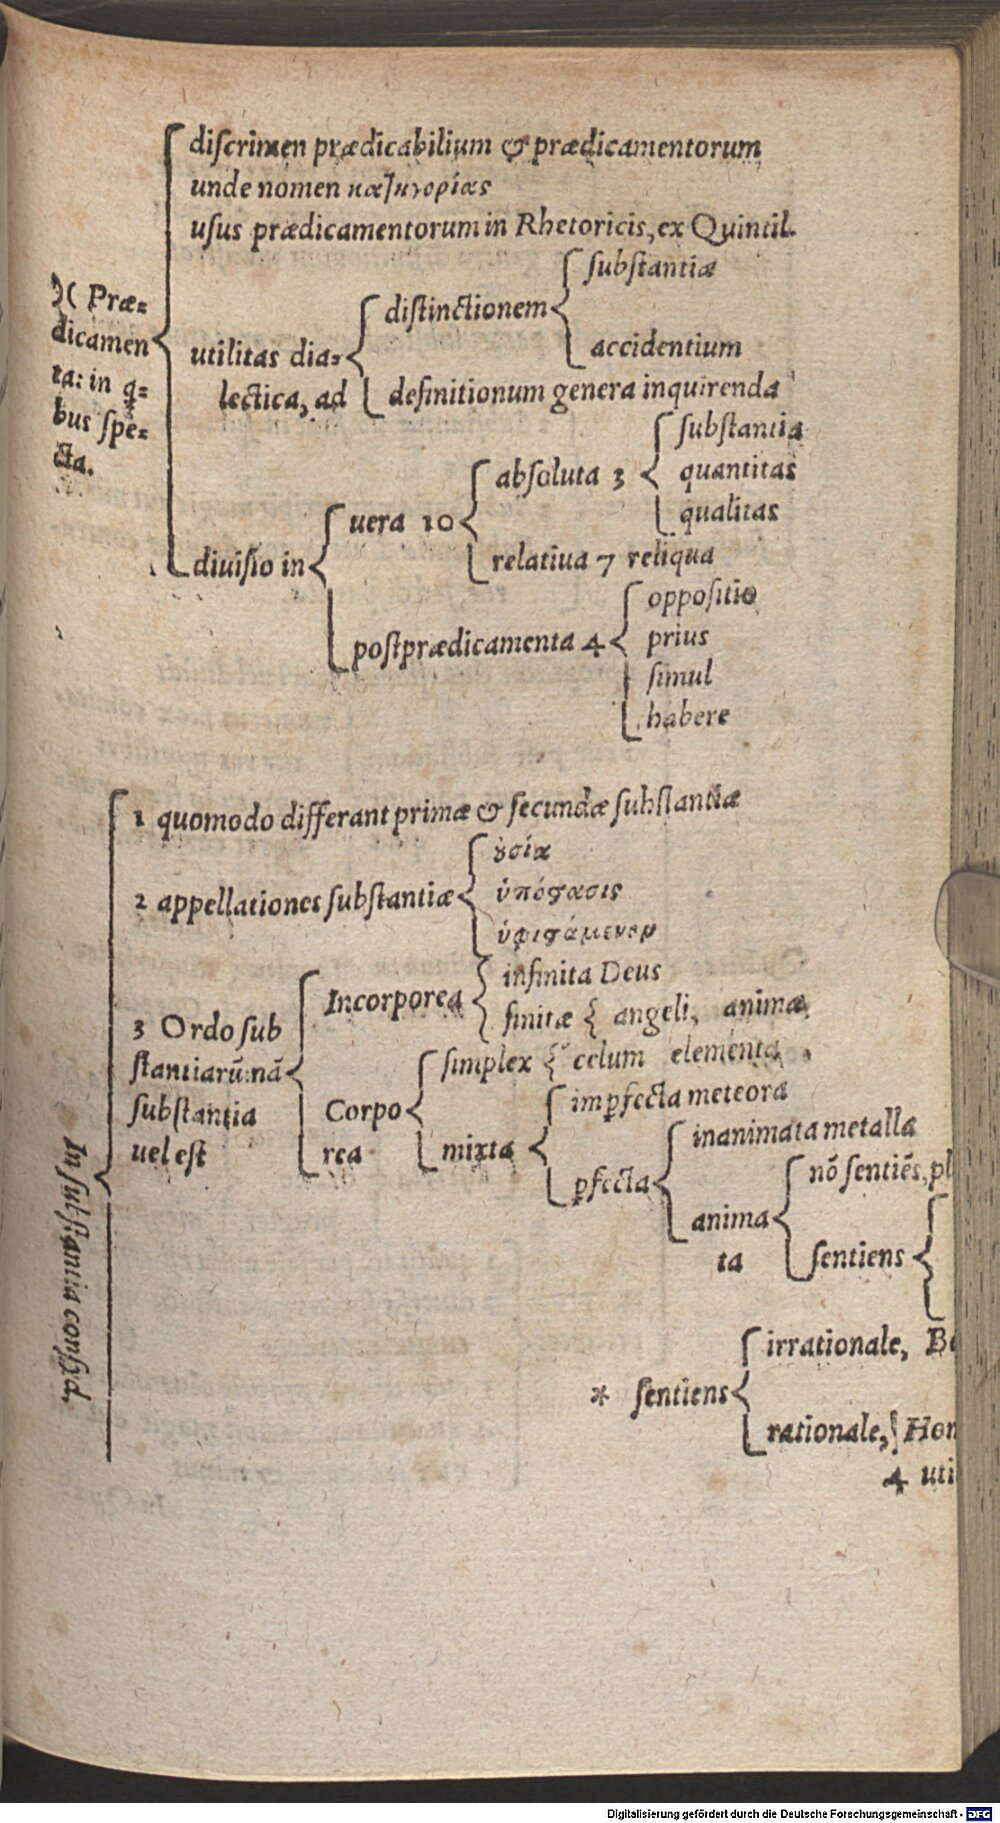 discrimen prædicabilium & prædicamentorum
unde nomen κατηγορίας
usus prædicamentorum in Rhetoricis, ex Quintil.
)( Præ=
dicamen
ta: in q̃=
bus spe=
cta.
utilitas dia=
lectica, ad
distinctionem
substantiæ
accidentium
definitionum genera inquirenda
diuisio in
uera 10
absoluta 3
substantia
quantitas
qualitas
relatiua 7 reliqua
postprædicamenta 4
oppositio
prius
simul
habere
In substantia consyd.
1 quomodo differant primæ & secundæ substantiæ
2 appellationes substantiæ
ȣσία
ὑπόϛασις
ὑφιϛάμενον
3 Ordo sub
stantiarū: nā
substantia
uel est
Incorporea
infinita Deus
finitæ { angeli, animæ
Corpo
rea
simplex { celum elementa
mixta
imꝑfecta meteora
ꝑfecta
inanimata metalla
anima
ta
nō sentiēs, pl
sentiens
* sentiens
irrationale, Be
rationale, Hom
4 uti